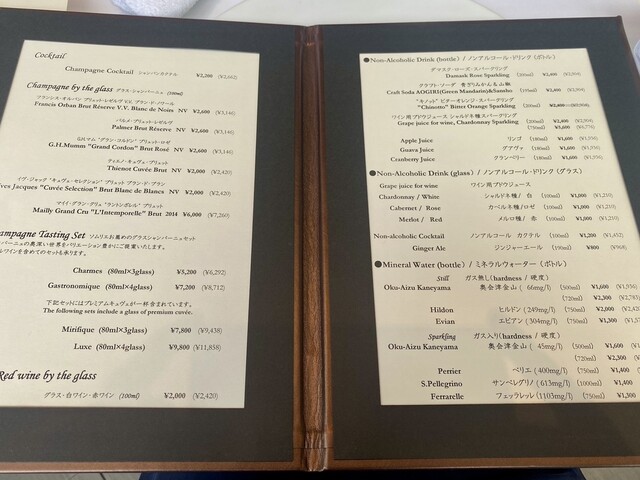 Cocktail
Champagne Cocktail シャンパンカクテル ¥2,200 (¥2,662)
Champagne by the glass グラス・シャンパーニュ (100ml)
フランシス・オルバン ブリュット・レゼルヴ V.V. ブラン・ド・ノワール
Francis Orban Brut Reserve V.V. Blanc de Noirs NV ¥2,600 (¥3,146)
パルメ・ブリュット・レゼルヴ
Palmer Brut Réserve NV ¥2,600 (¥3,146)
G.H.マム "グラン・コルドン" ブリュット・ロゼ
G.H.Mumm "Grand Cordon" Brut Rosé NV ¥2,600 (¥3,146)
ティエノ・キュヴェ・ブリュット
Thienot Cuvée Brut NV ¥2,000 (¥2,420)
イヴ・ジャック "キュヴェ・セレクション" ブリュット ブラン・ド・ブラン
ves Jacques "Cuvée Selection" Brut Blanc de Blancs NV ¥2,000 (¥2,420)
マイィ・グラン・クリュ "ラントンポレル" ブリュット
Mailly Grand Cru "L'Intemporelle" Brut 2014 ¥6,000 (¥7,260)
ampagne Tasting Set ソムリエお薦めのグラスシャンパーニュセット
ンパーニュの奥深い世界をバリエーション豊かにご提案いたします。
ルワインを含めてのセットも承ります。
Charmes (80ml×3glass) ¥5,200 (¥6,292)
Gastronomique (80ml×4glass) ¥7,200 (¥8,712)
下記セットにはプレミアムキュヴェが一杯含まれています。
The following sets include a glass of premium cuvée.
Mirifique (80ml×3glass) ¥7,800 (¥9,438)
Luxe (80ml×4glass) ¥9,800 (¥11,858)
Red wine by the glass
グラス・白ワイン・赤ワイン (100ml) ¥2,000 (¥2,420)
●Non-Alcoholic Drink (bottle) / ノンアルコール・ドリンク (ボトル)
ダマスク・ローズ・スパークリング
Damask Rose Sparkling (200ml) ¥2,400 (¥2,904)
クラフト・ソーダ 青きりみかん&山椒
Craft Soda AOGIRI(Green Mandarin)&Sansho (195ml) ¥2,400 (¥2,904)
"キノット" ビターオレンジ・スパークリング
"Chinotto" Bitter Orange Sparkling (200ml) ¥2,400 (¥2,904)
ワイン用ブドウジュース シャルドネ種スパークリング (200ml) ¥2,400 (¥2,904)
Grape juice for wine, Chardonnay Sparkling (750ml) ¥5,600 (¥6,776)
Apple Juice リンゴ (180ml) ¥1,000 (¥1,210)
Guava Juice グアヴァ (180ml) ¥1,000 (¥1,210)
Cranberry Juice クランベリー (180ml) ¥1,000 (¥1,210)
●Non-Alcoholic Drink (glass) / ノンアルコール・ドリンク (グラス)
Grape juice for wine ワイン用ブドウジュース
Chardonnay / White シャルドネ種/ 白 (100ml) ¥1,000 (¥1,210)
Cabernet / Rose カベルネ種/ロゼ (100ml) ¥1,000 (¥1,210)
Merlot / Red メルロ種/ 赤 (100ml) ¥1,000 (¥1,210)
Non-alcoholic Cocktail ノンアルコール カクテル (100ml) ¥1,200 (¥1,652)
Ginger Ale ジンジャーエール (190ml) ¥800 (¥968)
●Mineral Water (bottle) / ミネラルウォーター (ボトル)
Still ガス無し(hardness / 硬度)
Oku-Aizu Kaneyama 奥会津金山 ( 66mg/l) (500ml) ¥1,600
(720ml) ¥2,300
Hildon ヒルドン (249mg/l) (750ml) ¥2,000
Evian エビアン (304mg/l) (750ml) ¥1,300
Sparkling ガス入り(hardness / 硬度)
Oku-Aizu Kaneyama 奥会津金山 ( 45mg/l) (500ml) ¥1,600
(720ml) ¥2,300
Perrier ペリエ (400mg/l) (750ml) ¥1,300
S.Pellegrino サンペレグリノ (613mg/l) (1000ml) ¥1,400
Ferrarelle フェッラレッレ (1103mg/l) (750ml) ¥1,300